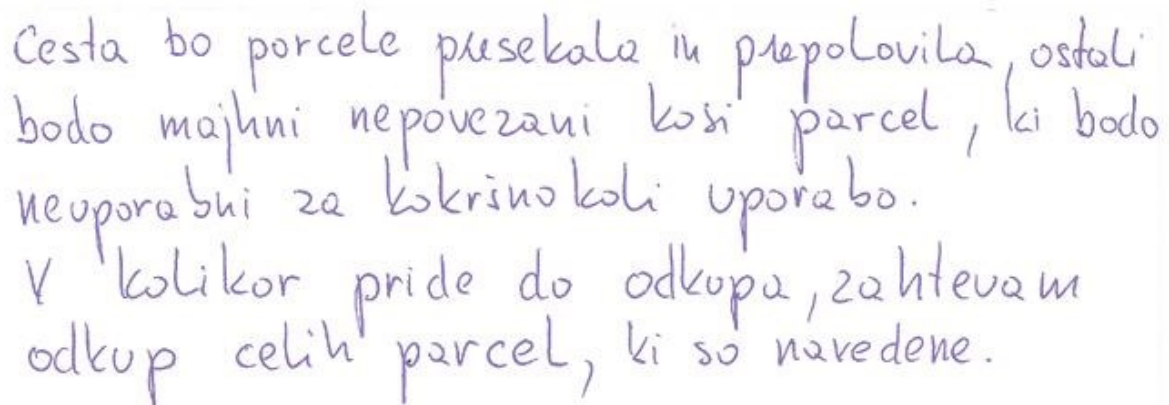 Cesta bo parcele presekala in prepolovila, ostali
bodo majhni nepovezani kosi parcel, ki bodo
neuporabni za kakršno koli uporabo.
V kolikor pride do odkupa, zahtevam
odkup celih parcel, ki so navedene.